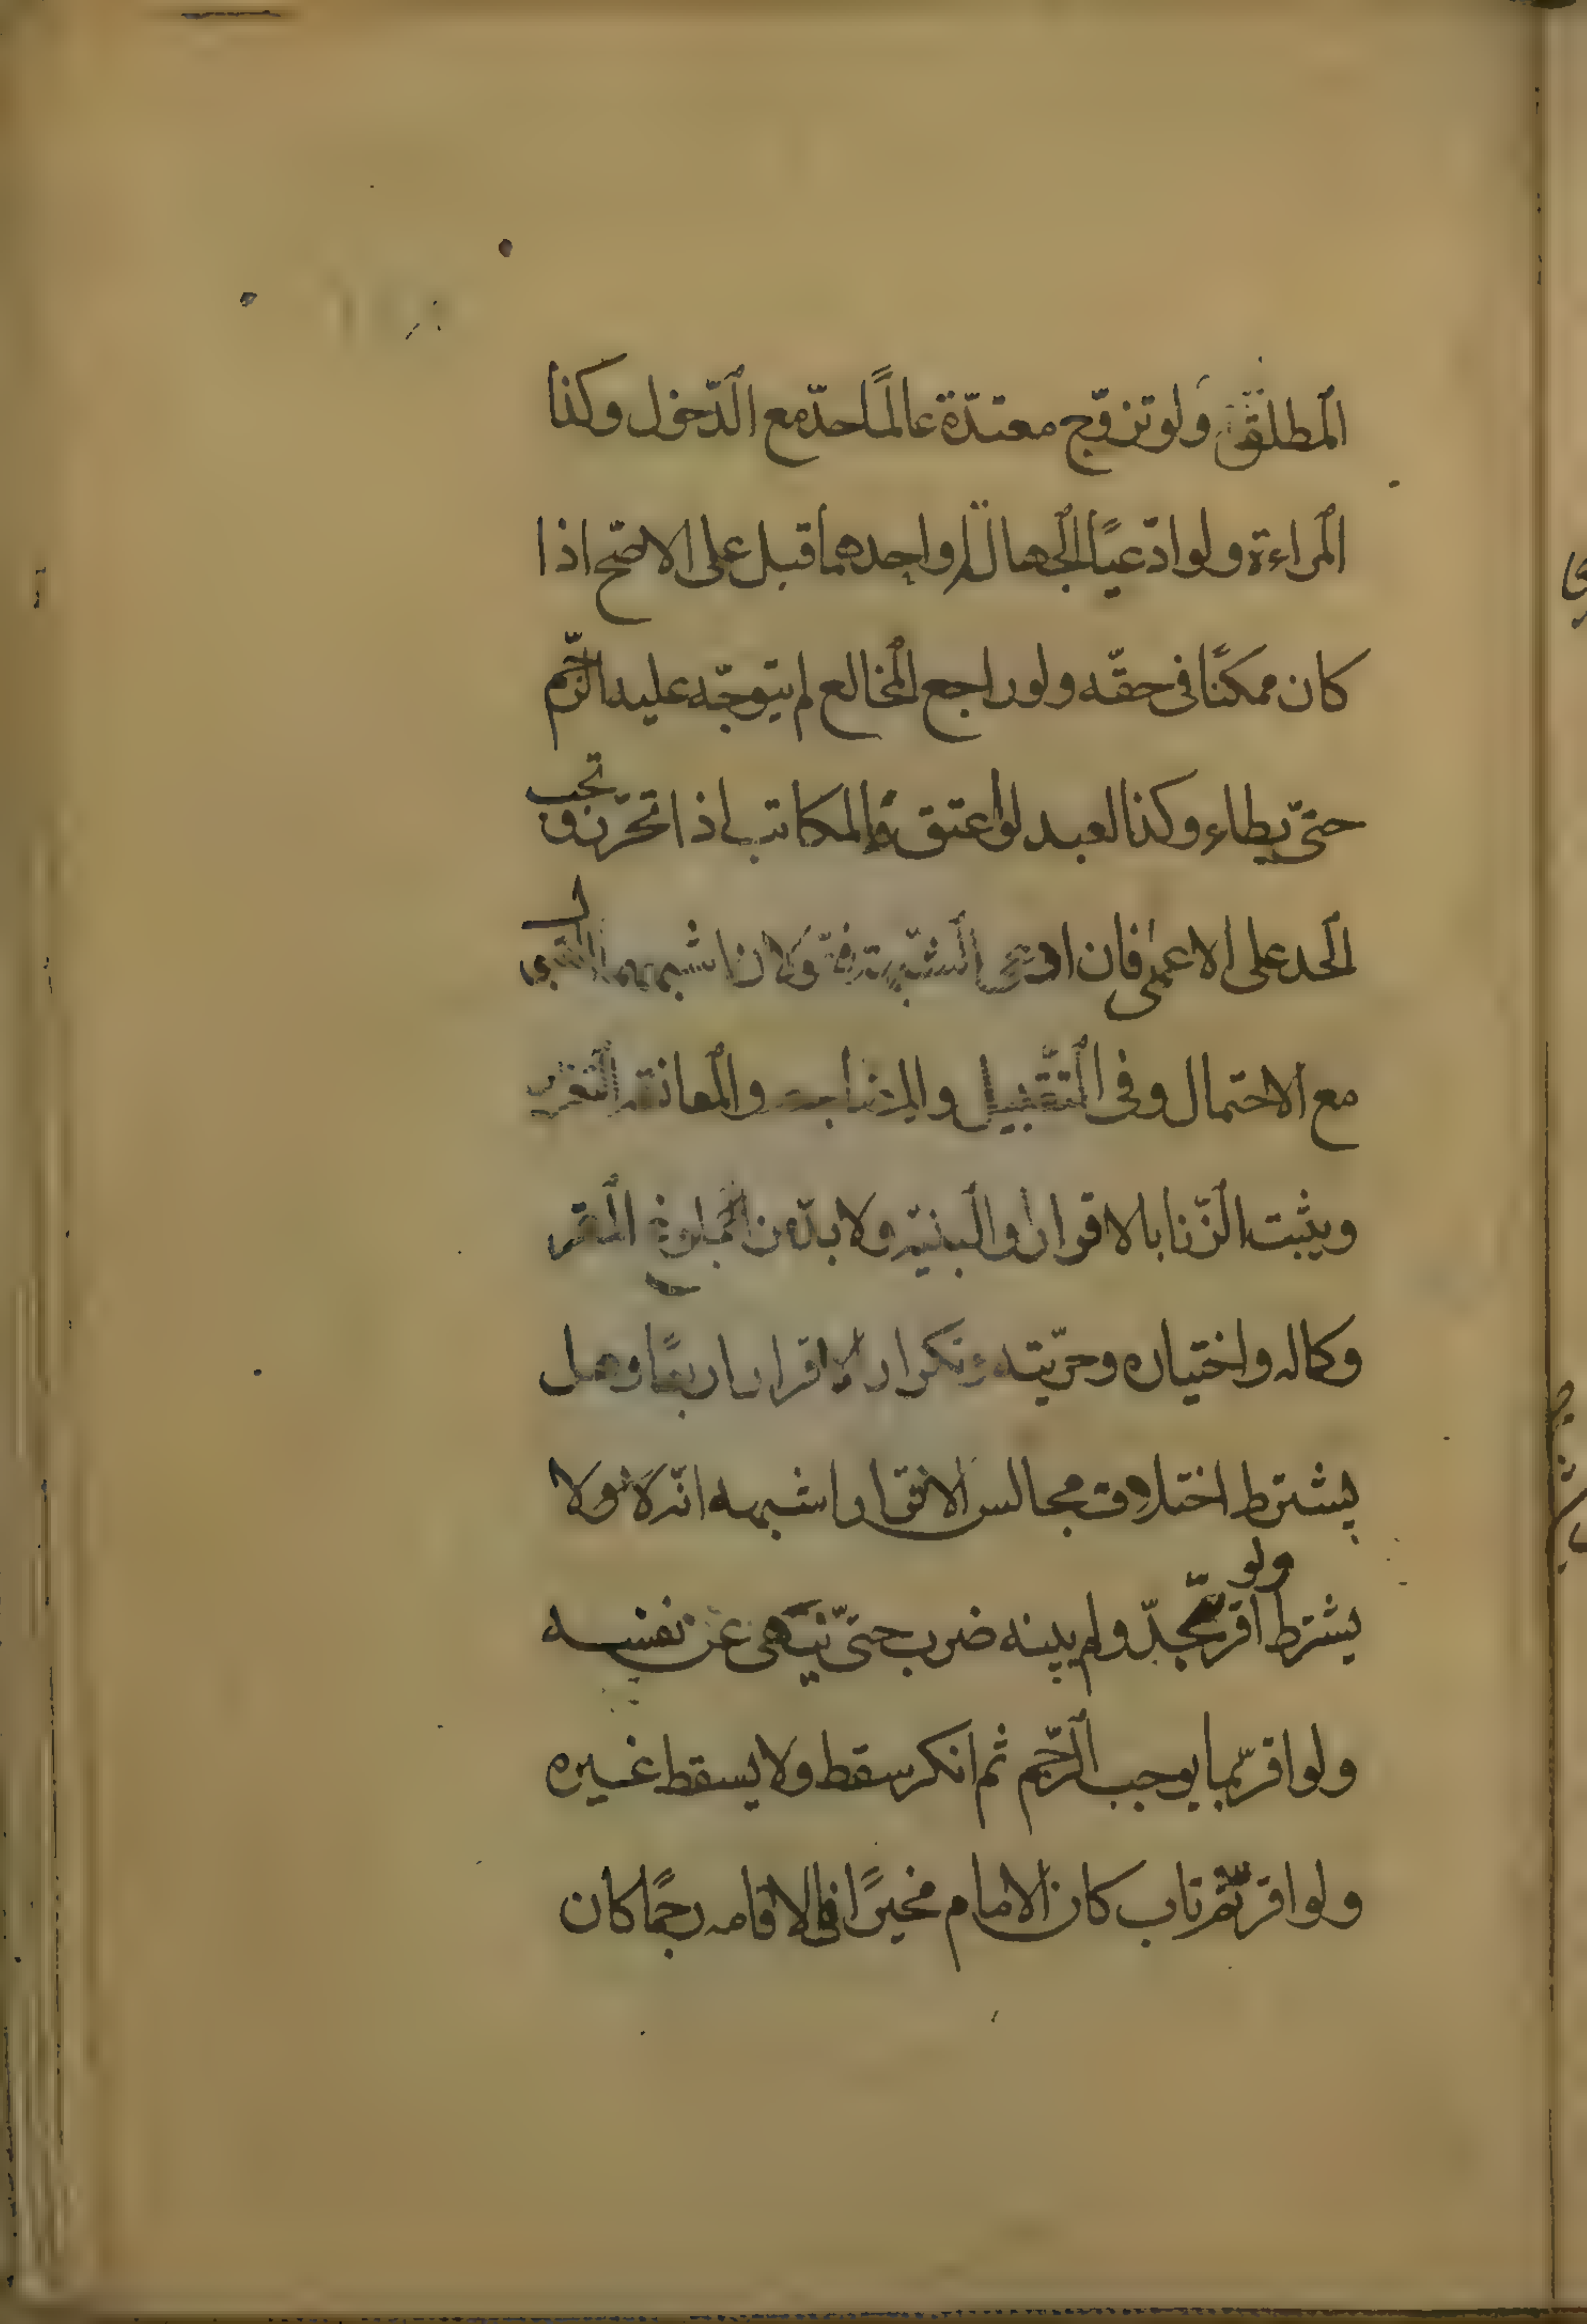 المطلقة ولو تزوّج معتدّة عالمًا حدّ مع الدّخول وكذا
المراءة ولو ادّعيا الجهالة او احدهما قبل على الاصّح اذا
كان ممكنًا فى حقّه ولو راجع المخالع لم يتوجّه عليه الرّجم
حتّى يطاء وكذا العبد لو اعتق والمكاتب اذا تحرّر و تجب
الحد على الاعمى فان ادعى الشّبهة فقولان اشبههما القبول
مع الاحتمال وفى التّقبيل والمضاجعة والمعانقة التعزير
ويثبت الزّنا بالاقرار والبينة ولا بدّ من بلوغ المقر
وكماله واختياره وحرّيته وتكرار الاقرار اربعًا وهل
يشترط اختلاف مجالس الاقرار اشبهه انّه لا ولا
يشترط ولو اقرّ بحدّ ولم يبينه ضرب حتّى ينهى عن نفسه
ولو اقرّ بما يوجب الرّجم ثم انكر سقط ولا يسقط غيره
ولو اقر ثم تاب كان الامام مخيرًا فى الاقامه رجمًا كان